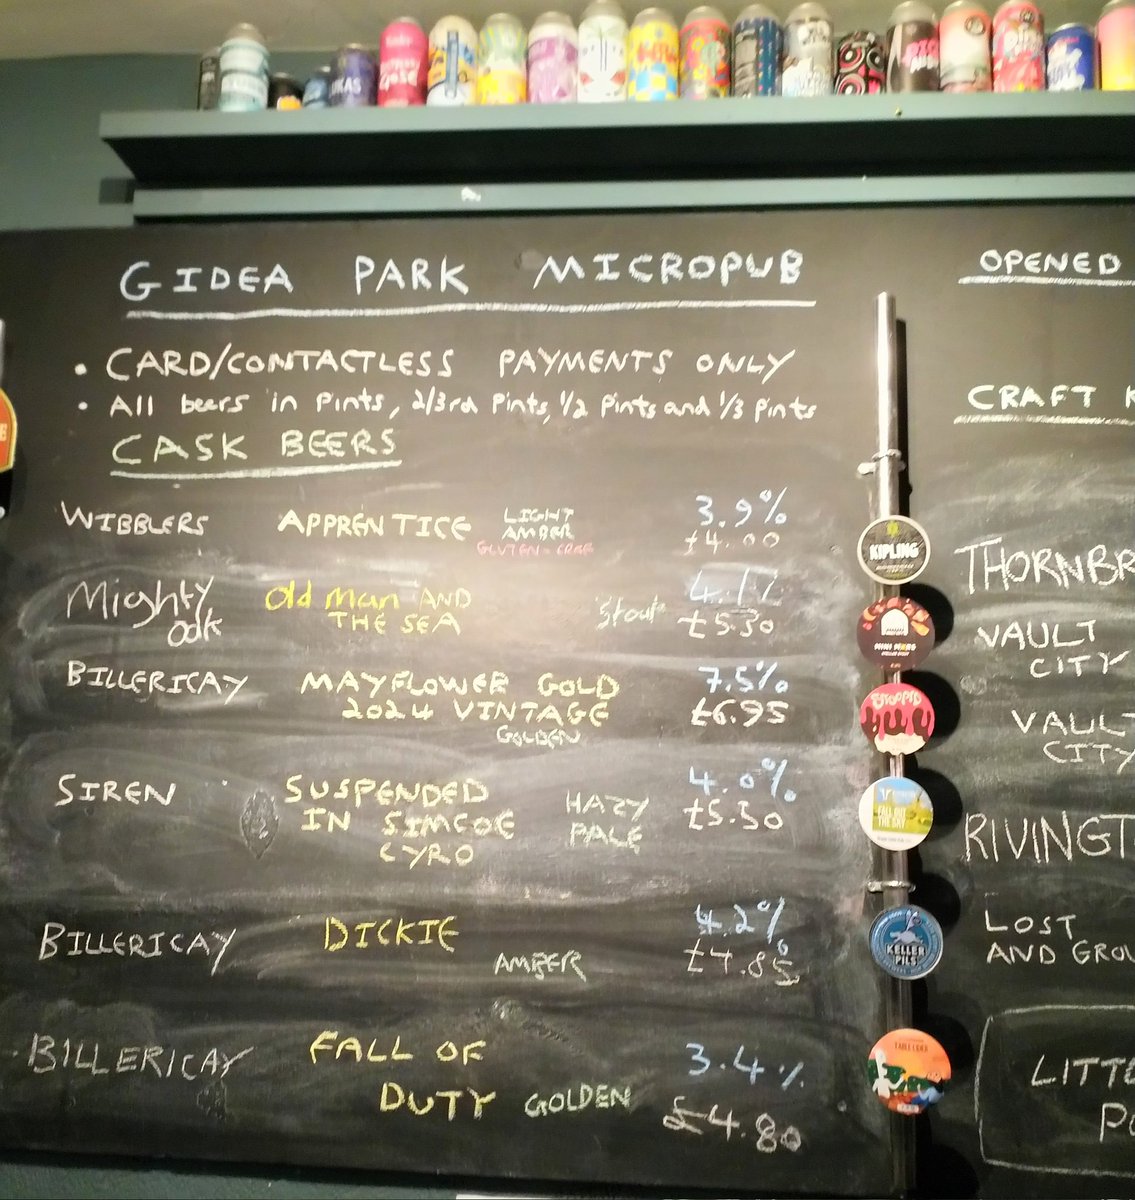 GIDEA PARK MICROPUB
• CARD/CONTACTLESS PAYMENTS ONLY
• All beers in pints, 2/3rd pints, 1/2 pints and 1/3 pints
CASK BEERS
WIBBLERS APPRENTICE LIGHT AMBER GLUTEN-FREE 3.9% £4.00
Mighty Oak Old Man AND THE SEA Stout 4.1% £5.30
BILLERICAY MAYFLOWER GOLD 2024 VINTAGE GOLDEN 7.5% £6.95
SIREN SUSPENDED IN SIMCOE CYRO HAZY PALE 4.0% £5.50
BILLERICAY DICKIE AMBER 4.2% £4.85
BILLERICAY FALL OF DUTY GOLDEN 3.4% £4.80
OPENED
CRAFT K
KIPLING
THORNBR
MINI MARS
VAULT
CITY
VAULT
CITY
FALL OUT
THE SKY
RIVINGT
KELLER
PILS
LOST
AND GROU
TABLE CIDER
LITTE
PO